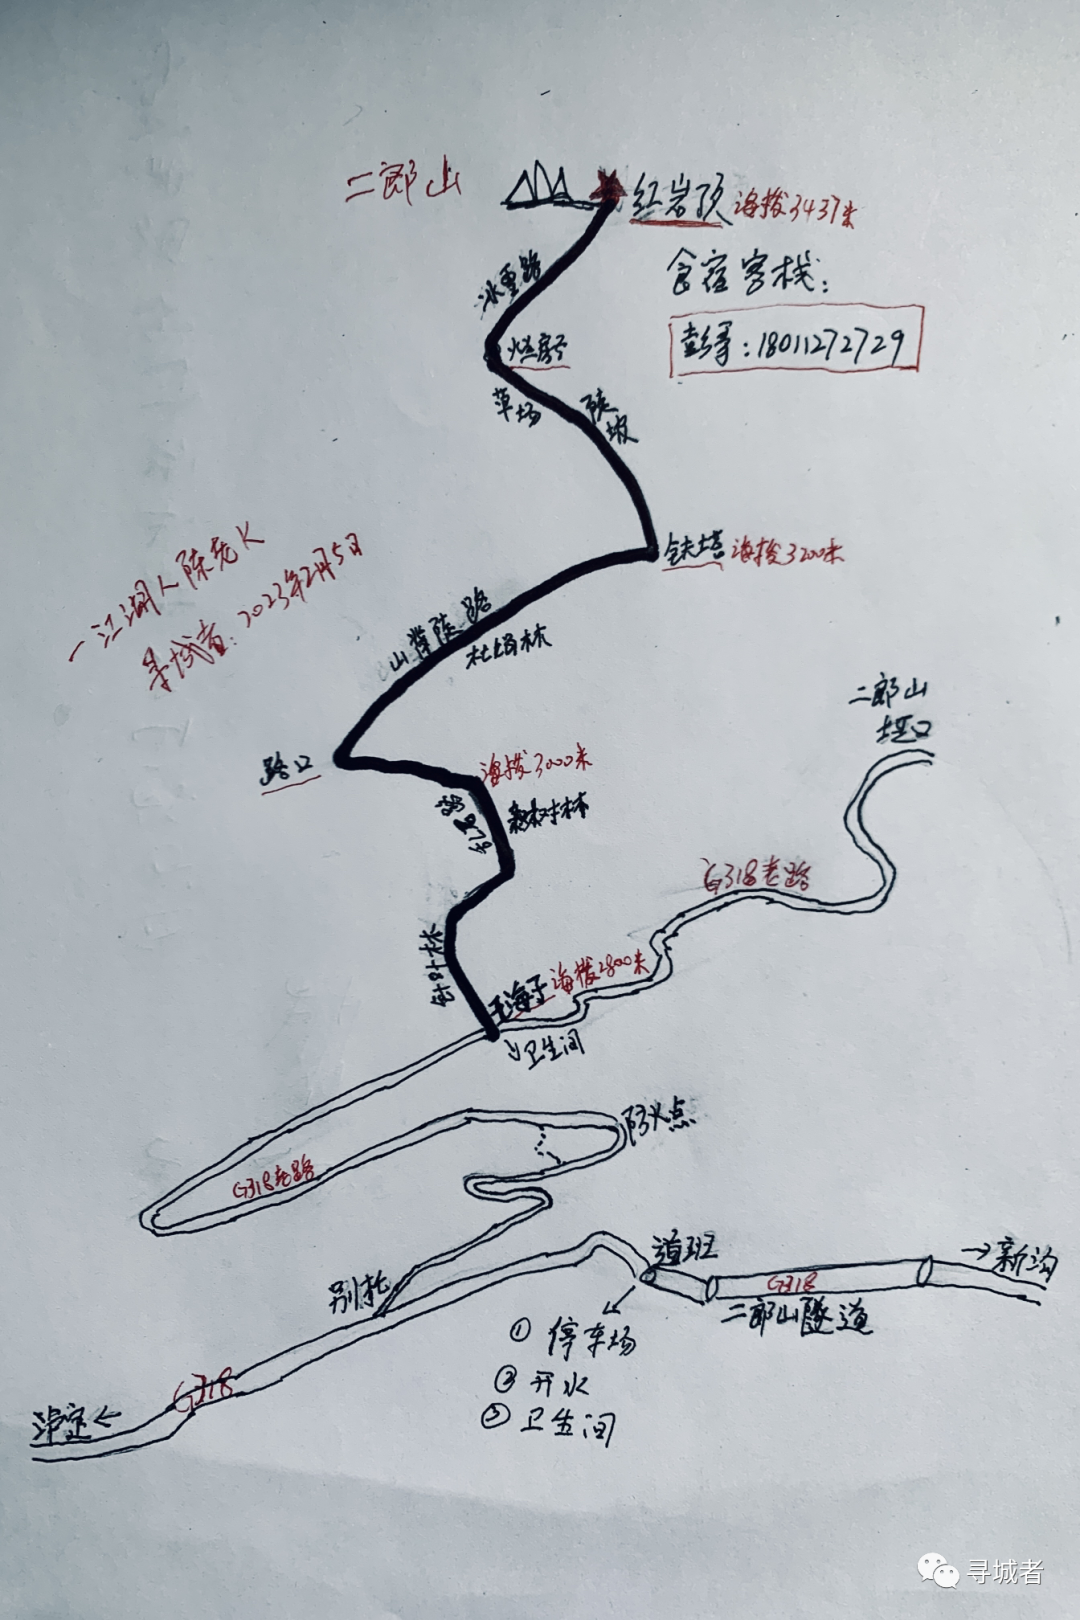 二郎山
红岩顶 海拔3437米
食宿客栈：
彭哥：18011272729
冰雪路
烂房子
草场
陡坡
铁塔 海拔3200米
一江湖人陈老K
寻城者：2023年2月5日
山脊陡路
杜鹃林
二郎山
垭口
路口
海拔3000米
杉树林
G318老路
针叶林
王海子 海拔2800米
卫生间
防火点
G318老路
别托
道班
→新沟
G318
二郎山隧道
① 停车场
② 开水
③ 卫生间
G318
泸定←
寻城者